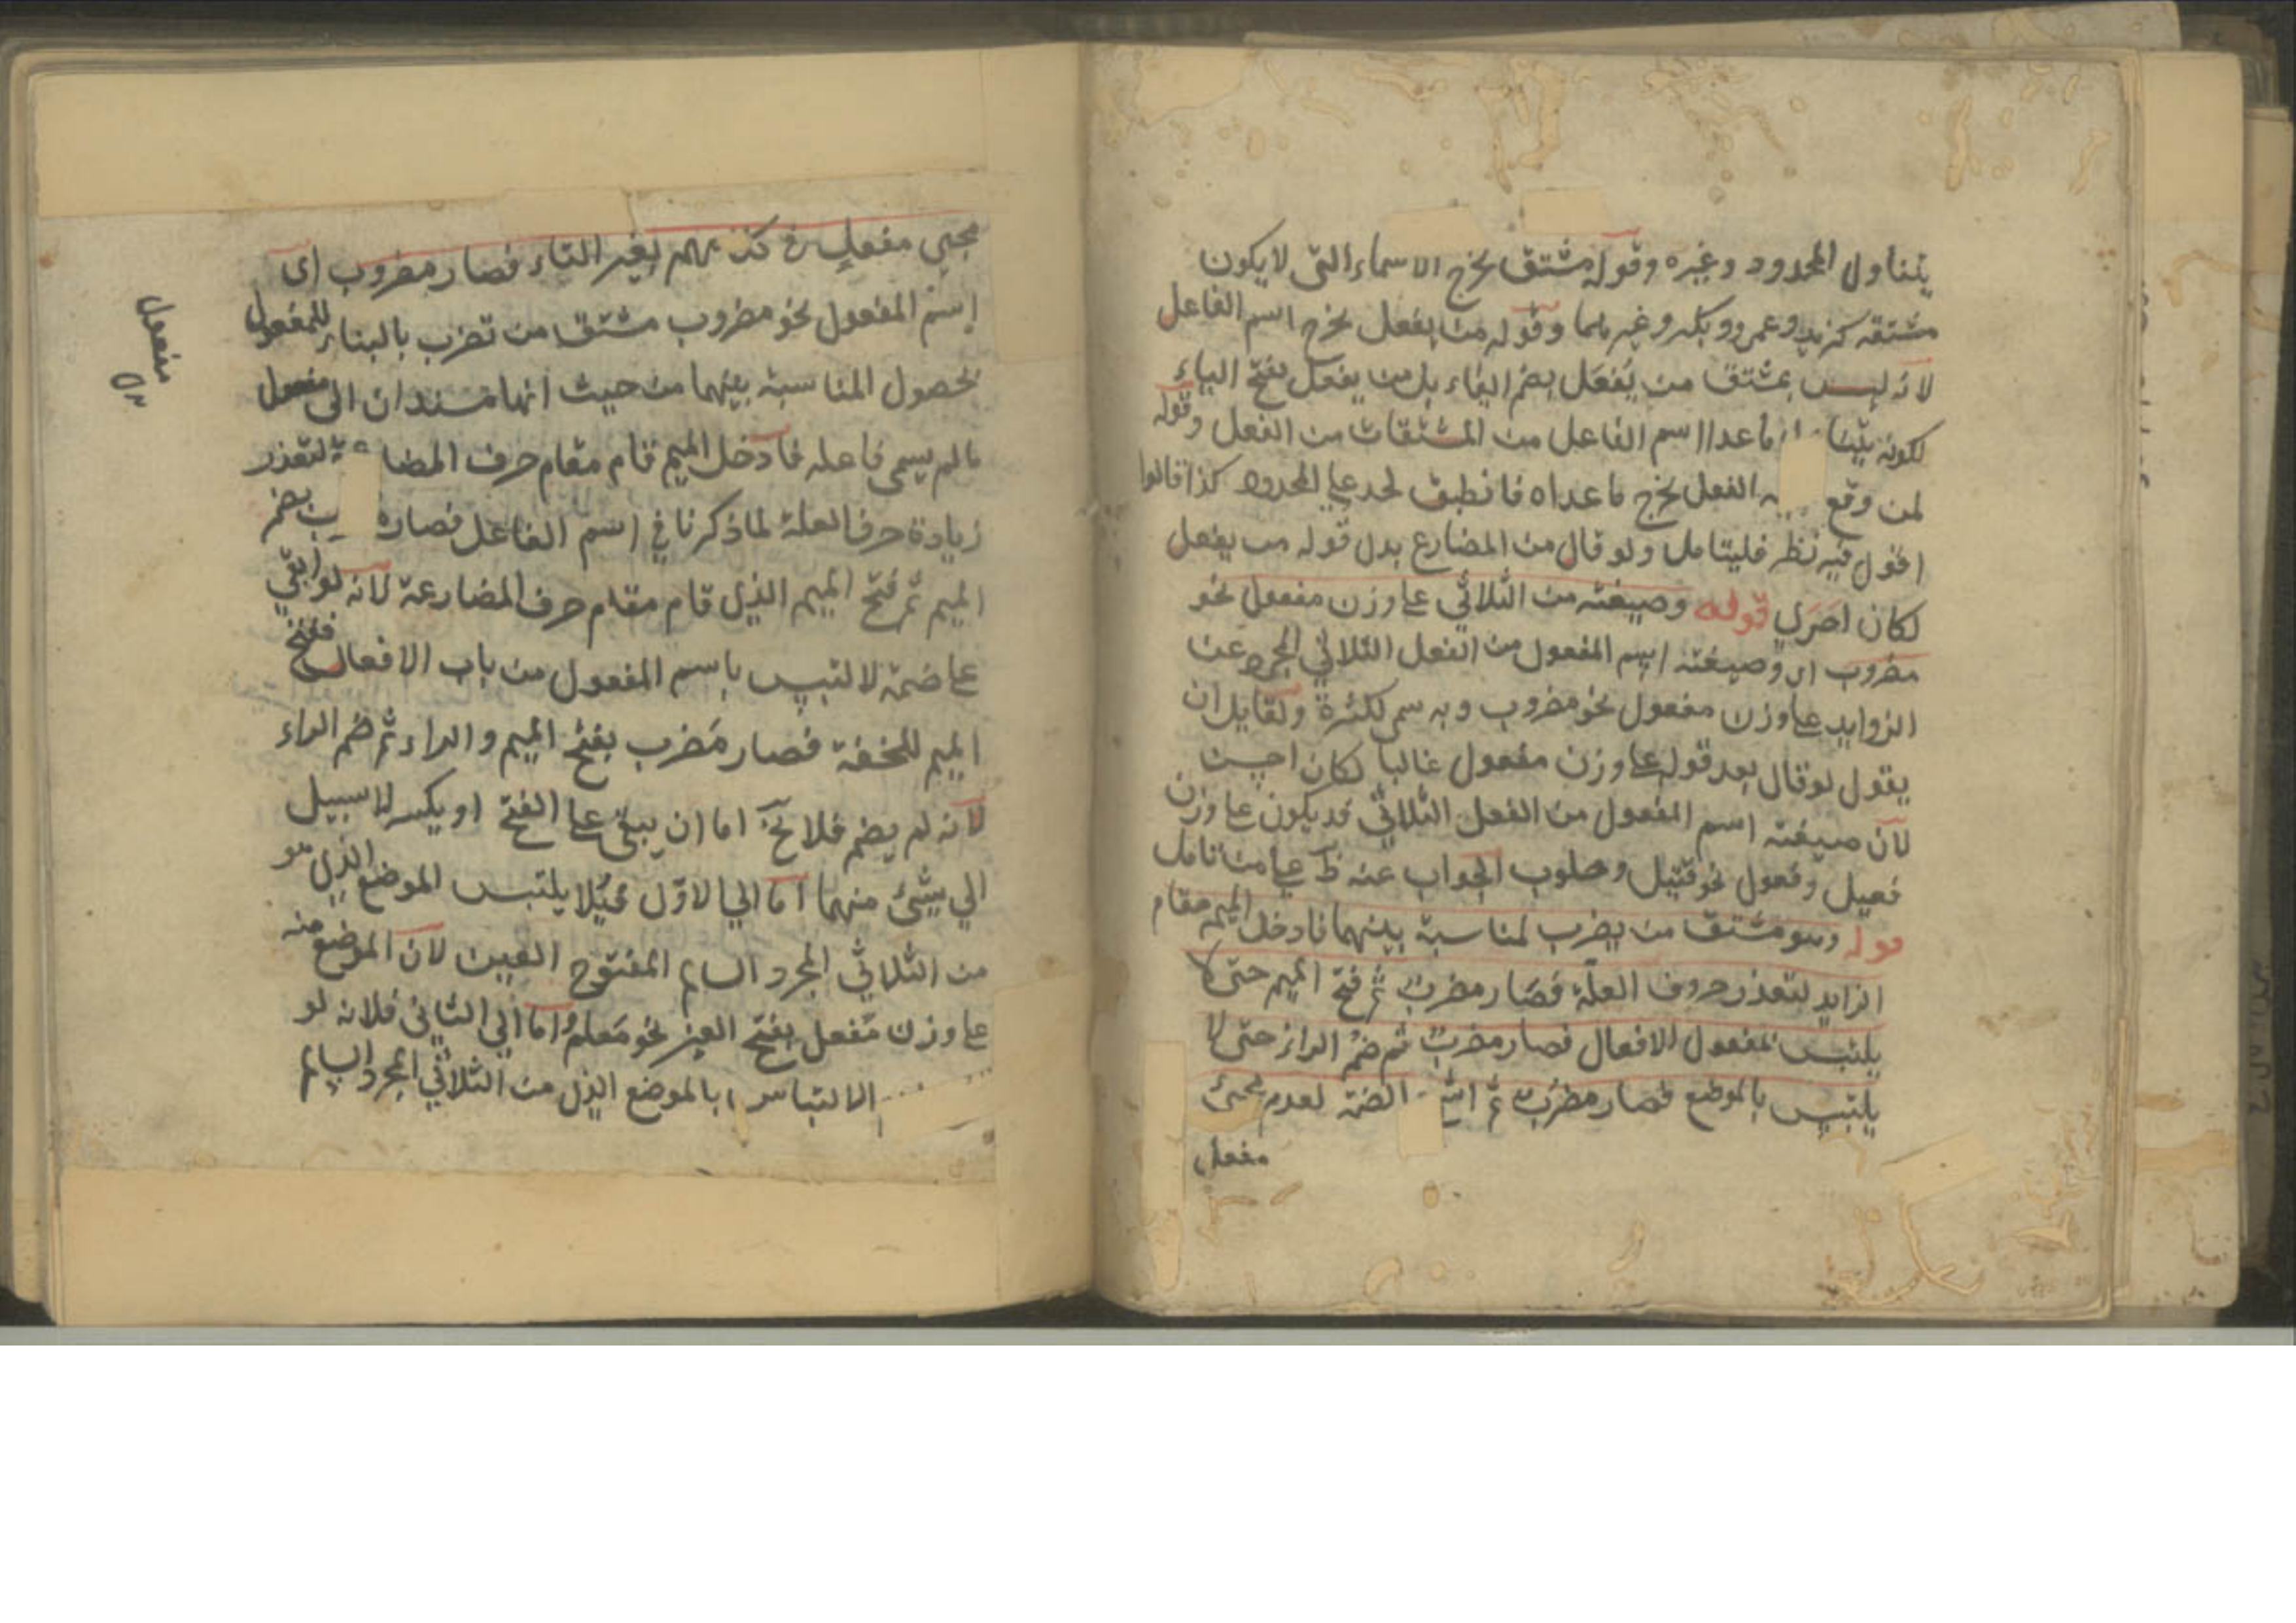 يتناول المحدود وغيره وقوله مشتق يخرج الاسماء التى لا يكون
مشتقه كزيد وعمرو وبكر وغيرهما وقوله من يفعل يخرج اسم الفاعل
لانه ليس بمشتق من يُفعَل بضم الياء بل من يفعل بفتح الياء
لكونه ما عدا اسم الفاعل من المشتقات من الفعل وقوله
لمن وقع الفعل يخرج ما عداه فانطبق لحد على المحدود كذا قالوا
اقول فيه نظر فليتامل ولو قال من المضارع بدل قوله من يفعل
لكان احرى قوله وصيغته من الثلاثي على وزن مفعول نحو
مضروب اى وصيغته اسم المفعول من الفعل الثلاثي المجرد عن
الزوايد على وزن مفعول نحو مضروب ولقايل ان
يقول لو قال بعد قوله على وزن مفعول غالبا لكان احسن
لان صيغته اسم المفعول من الفعل الثلاثي قد يكون على وزن
فعيل وفعول نحو قتيل وحلوب الجواب عنه ظ على من تامل
قوله وهو مشتق من يضرب لمناسبة بينهما فادخل الميم مقام
الزايد لتعذر حروف العلة فصار مضرب ثم فتح الميم حتى لا
يلتبس لمفعول الافعال فصار مضرب ثم ضم الراء حتى لا
يلتبس بالموضع فصار مضرب ثم الضمة لعدم مجئ
مفعل
مجيى مفعل في كلامهم بغير التاء فصار مضروب اى
اسم المفعول نحو مضروب مشتق من تضرب بالبناء للمفعول
لحصول المناسبة بينهما من حيث انهما مسندان الى مفعول
ما لم يسمى فاعله فادخل الميم قام مقام حرف لتعذر
زيادة حرف العلة لما ذكرنا في اسم الفاعل فصار بضم
الميم ثم فتح الميم الذى قام مقام حرف المضارعة لانه لو ابقي
على ضمته لالتبس باسم المفعول من باب الافعال ففتح
الميم للخفة فصار مَضرب بفتح الميم والراء ثم ضم الراء
لانه لم يضم فلا يخ اما ان يبقى على الفتح او يكسر لا سبيل
الى شئ منهما اما الى الاوّل فلئلا يلتبس الموضع الذى هو
من الثلاثي المجرد السالم المفتوح العين لان الموضع منه
على وزن مَفعل بفتح العين نحو مَعلم واما الى الثاني فلانه لو
الالتباس بالموضع الذى من الثلاثي المجرد السالم
مفعول